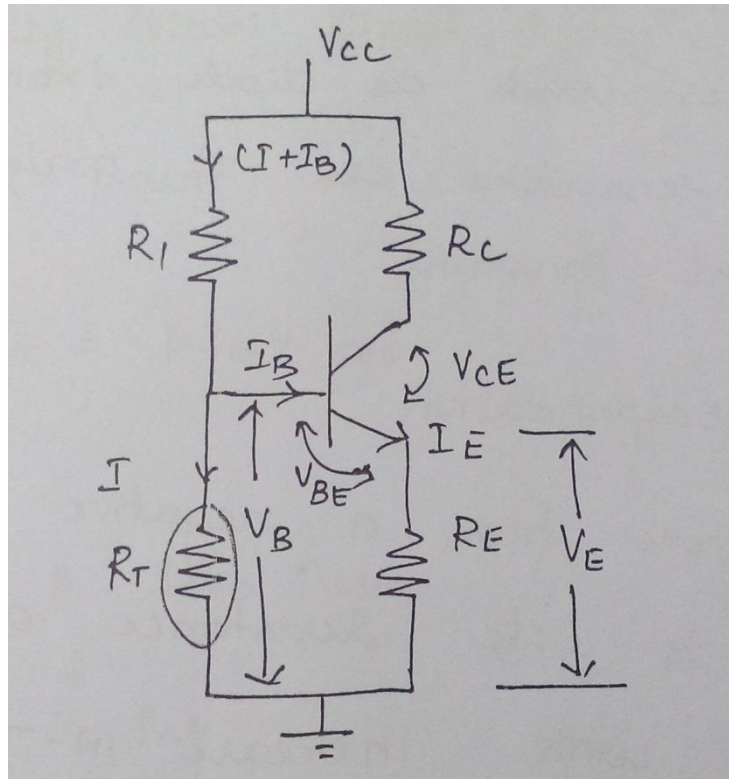 VCC
(I+IB)
R1
RC
IB
VCE
IE
VBE
I
VB
RE
VE
RT